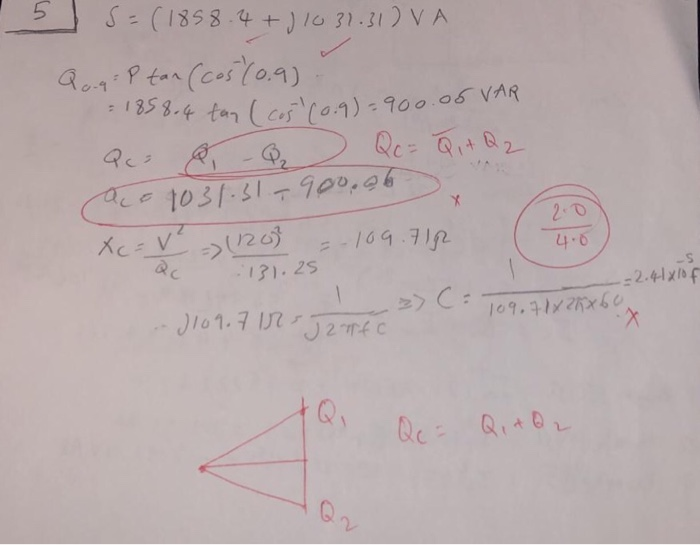 5
S = (1858.4 + j1031.31) VA
Q0.9 = P tan (cos⁻¹(0.9)
= 1858.4 tan (cos⁻¹(0.9) = 900.05 VAR
Qc = Q1 - Q2
Qc = Q1 + Q2
Qc = 1031.31 - 900.06
x
2.0
4.0
Xc = V²/Qc => (120)²/131.25 = -109.71Ω
j109.71Ω = 1/j2πfC => C = 1/109.71x2πx60 = 2.41x10⁻⁵F
x
Q1
Qc = Q1 + Q2
Q2